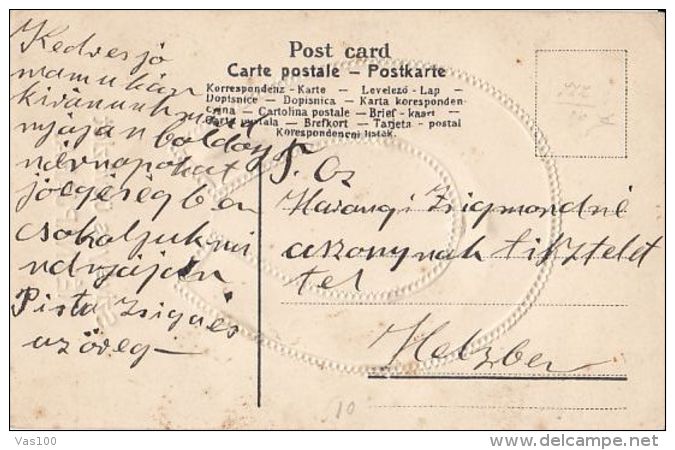 Post card
Carte postale – Postkarte
Korrespondenz-Karte — Levelező-Lap —
Dopisnice — Dopisnica — Karta koresponden-
cina — Cartolina postale — Brief-kaart
postala — Brefkort — Tarjeta - postal
Korespondencni listek.
Kedves jó
mamukám
kivánunk
nyájan boldog
névnapokat
jó egéségben
csokoljuk mi
ndnyájan
Pista Zsiga és
az öreg –
T. Cz
Harangi Zsigmondné
aszonynak tisztelet
tel
Helyben
10
Vas100
www.delcampe.net